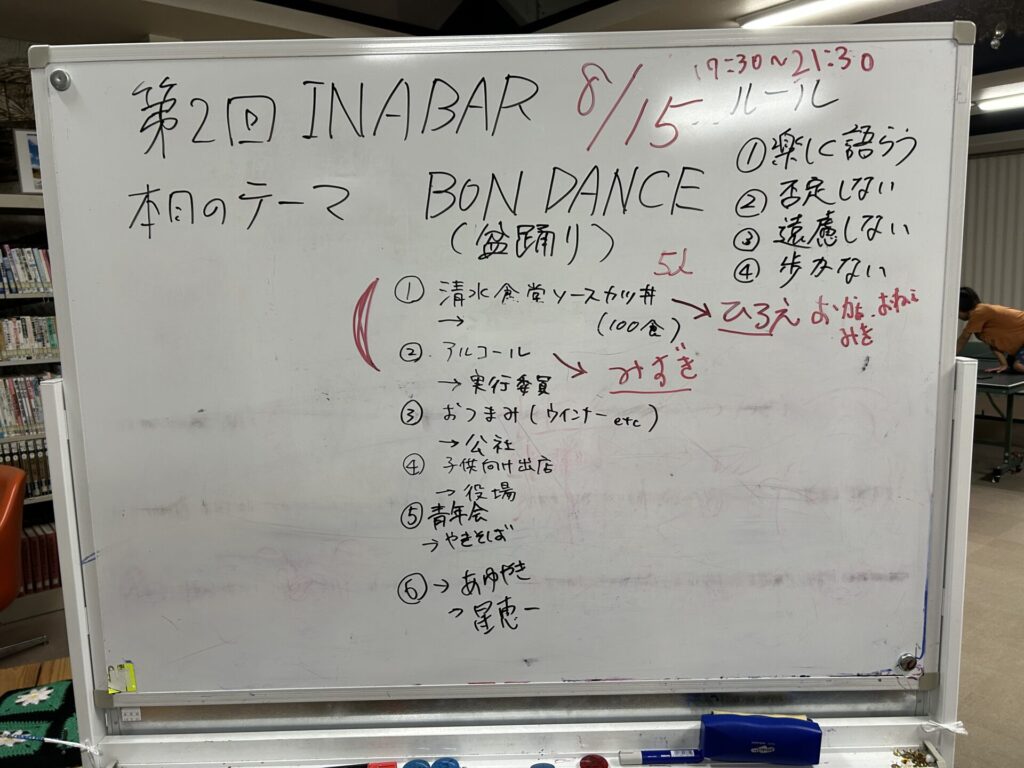 第2回 INABAR 8/15
19:30～21:30
ルール
①楽しく語らう
②否定しない
③遠慮しない
④歩かない
本日のテーマ BON DANCE
(盆踊り)
① 清水食堂ソースカツ丼
→ (100食)
5人
→ ひろえ
みき
② アルコール → みずき
→ 実行委員
③ おつまみ(ウインナー etc)
→ 公社
④ 子供向け出店
→ 役場
⑤ 青年会
→ やきそば
⑥ → あゆやき
→ 星恵一